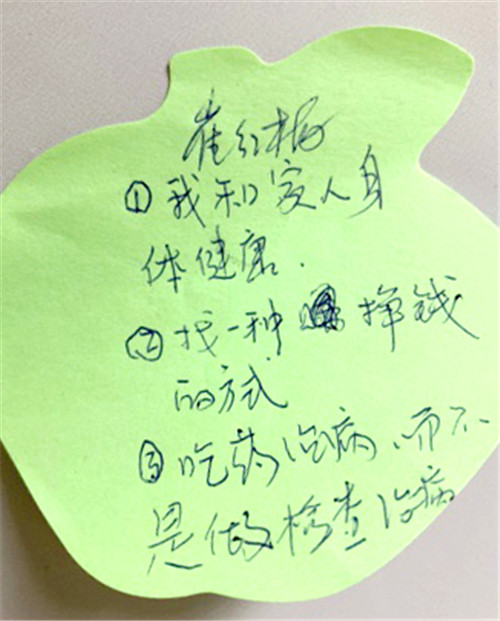 崔红梅
①我和家人身
体健康.
②找一种挣钱
的方式
③吃药治病,而不
是做检查治病